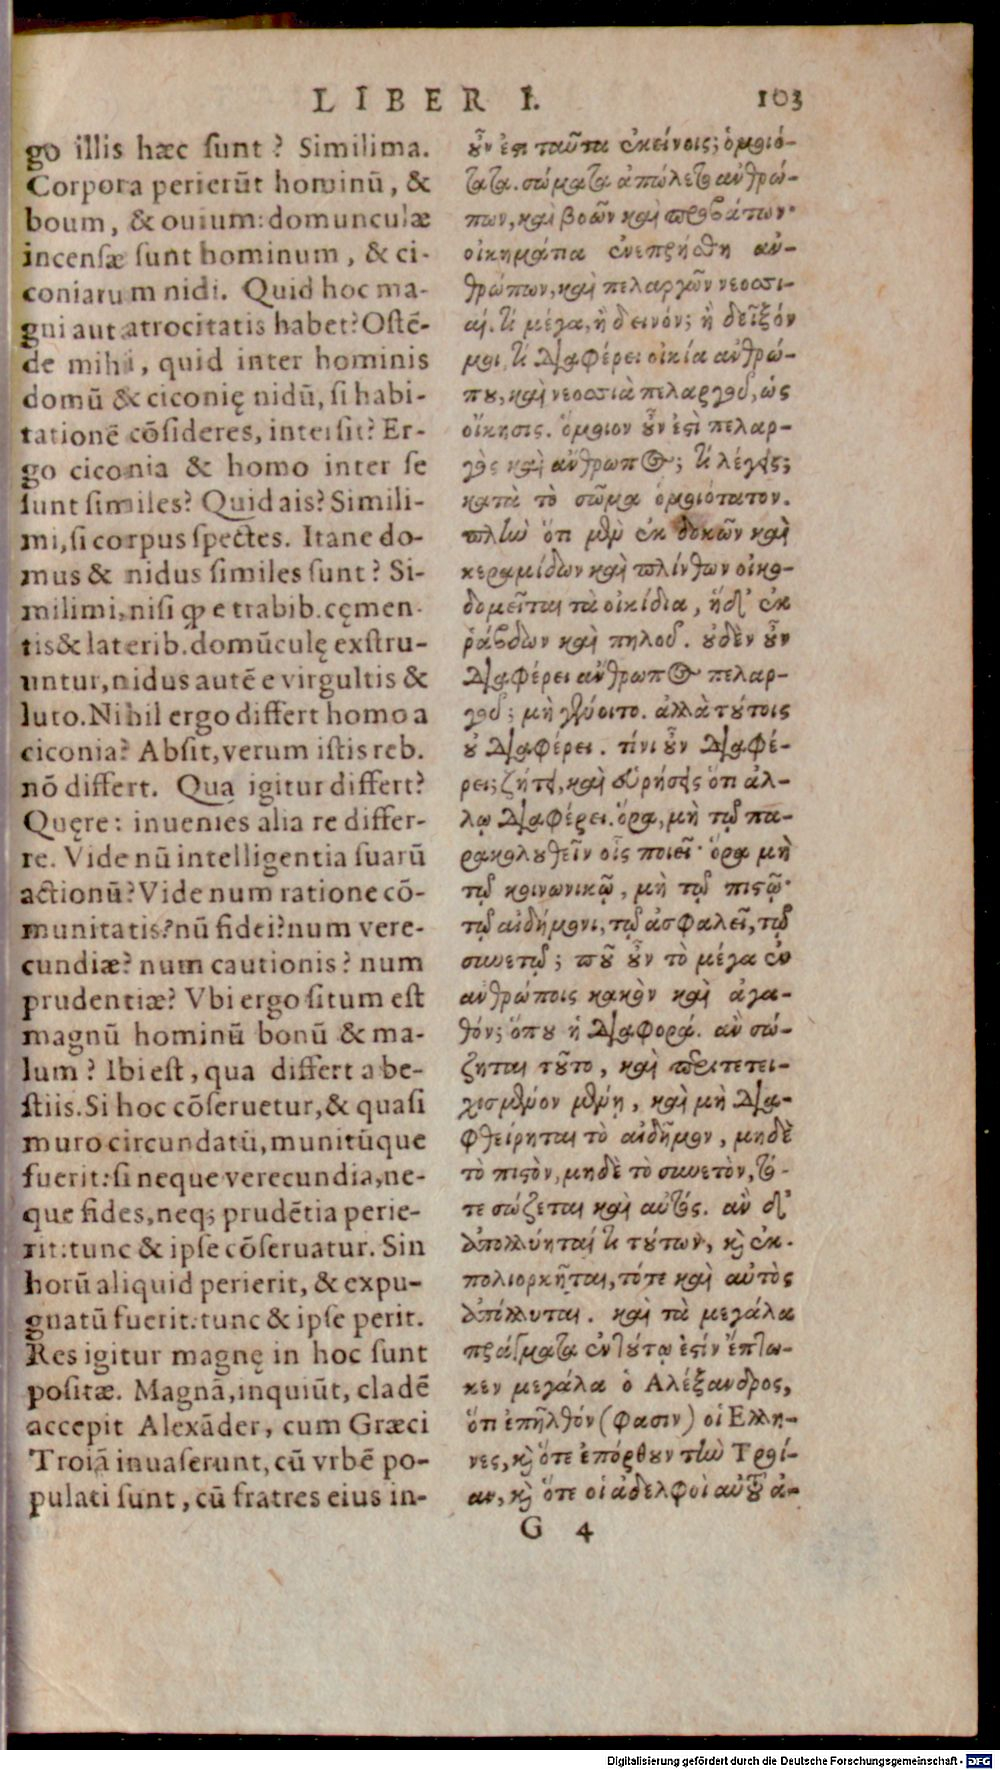 LIBER I. 103
go illis hæc sunt? Similima.
Corpora perierūt hominū, &
boum, & ouium: domunculæ
incensæ sunt hominum, & ci-
coniarum nidi. Quid hoc ma-
gni aut atrocitatis habet? Ostē-
de mihi, quid inter hominis
domū & ciconię nidū, si habi-
tationē cōsideres, intersit? Er-
go ciconia & homo inter se
sunt similes? Quid ais? Simili-
mi, si corpus spectes. Itane do-
mus & nidus similes sunt? Si-
milimi, nisi ꝙ e trabib. cęmen-
tis & laterib. domūculę exstru-
untur, nidus autē e virgultis &
luto. Nihil ergo differt homo a
ciconia? Absit, verum istis reb.
nō differt. Qua igitur differt?
Quęre: inuenies alia re differ-
re. Vide nū intelligentia suarū
actionū? Vide num ratione cō-
munitatis? nū fidei? num vere-
cundiæ? num cautionis? num
prudentiæ? Vbi ergo situm est
magnū hominū bonū & ma-
lum? Ibi est, qua differt a be-
stiis. Si hoc cōseruetur, & quasi
muro circundatū, munitūque
fuerit: si neque verecundia, ne-
que fides, neq; prudētia perie-
rit: tunc & ipse cōseruatur. Sin
horū aliquid perierit, & expu-
gnatū fuerit: tunc & ipse perit.
Res igitur magnę in hoc sunt
positæ. Magnā, inquiūt, cladē
accepit Alexāder, cum Græci
Troiā inuaserunt, cū vrbē po-
pulati sunt, cū fratres eius in-
οὖν ἐστι ταῦτα ἐκείνοις; ὁμοιό-
τατα. σώματα ἀπώλετο ἀνθρώ-
πων, καὶ βοῶν καὶ προβάτων·
οἰκημάτια ἐνεπρήσθη ἀν-
θρώπων, καὶ πελαργῶν νεοσσι-
αί. τί μέγα, ἢ δεινόν; ἢ δεῖξόν
μοι τί διαφέρει οἰκία ἀνθρώ-
που, καὶ νεοσσιὰ πελαργοῦ, ὡς
οἴκησις. ὅμοιον οὖν ἐστὶ πελαρ-
γὸς καὶ ἄνθρωπος; τί λέγεις;
κατὰ τὸ σῶμα ὁμοιότατον.
πλὴν ὅτι μὲν ἐκ δοκῶν καὶ
κεραμίδων καὶ πλίνθων οἰκο-
δομεῖται τὰ οἰκίδια, ἡ δ' ἐκ
ῥάβδων καὶ πηλοῦ. οὐδὲν οὖν
διαφέρει ἄνθρωπος πελαρ-
γοῦ; μὴ γένοιτο. ἀλλὰ τούτοις
οὐ διαφέρει. τίνι οὖν διαφέ-
ρει; ζήτει, καὶ εὑρήσεις ὅτι ἄλ-
λῳ διαφέρει. ὅρα, μὴ τῷ πα-
ρακολουθεῖν οἷς ποιεῖ· ὅρα μὴ
τῷ κοινωνικῷ, μὴ τῷ πιστῷ·
τῷ αἰδήμονι, τῷ ἀσφαλεῖ, τῷ
συνετῷ; ποῦ οὖν τὸ μέγα ἐν
ἀνθρώποις κακὸν καὶ ἀγα-
θόν; ὅπου ἡ διαφορά. ἂν σώ-
ζηται τοῦτο, καὶ περιτετει-
χισμένον μένῃ, καὶ μὴ δια-
φθείρηται τὸ αἰδῆμον, μηδὲ
τὸ πιστὸν, μηδὲ τὸ συνετὸν, τό-
τε σώζεται καὶ αὐτός. ἂν δ'
ἀπολλύηταί τι τούτων, καὶ ἐκ-
πολιορκῆται, τότε καὶ αὐτὸς
ἀπόλλυται. καὶ τὰ μεγάλα
πράγματα ἐν τούτῳ ἐστίν ἔπται-
κεν μεγάλα ὁ Αλέξανδρος,
ὅτι ἐπῆλθόν (φασιν) οἱ Ελλη-
νες, καὶ ὅτε ἐπόρθουν τὴν Τροί-
αν, καὶ ὅτε οἱ ἀδελφοὶ αὐτοῦ ἀ-
G 4
Digitalisierung gefördert durch die Deutsche Forschungsgemeinschaft - DFG